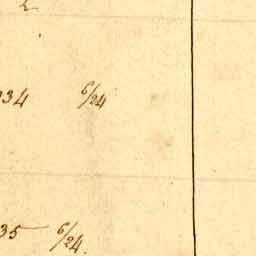 34 6/24
35 6/24.